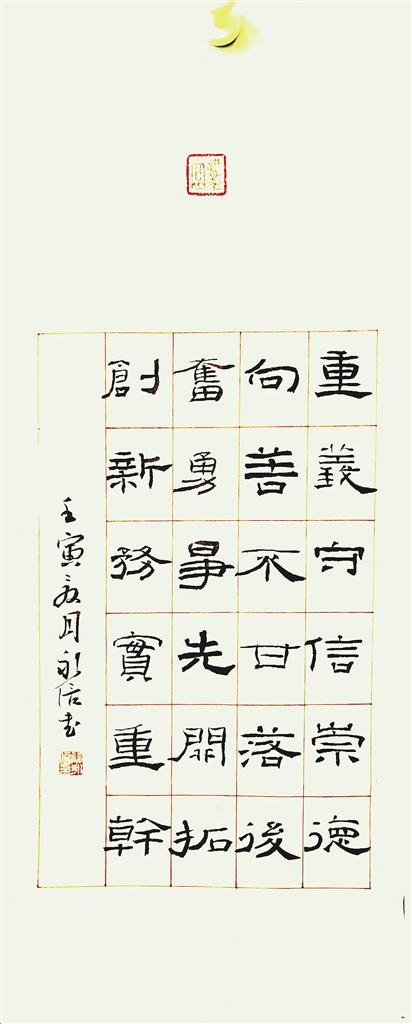 重義守信崇德
向善不甘落後
奮勇爭先開拓
創新務實重幹
壬寅月永信書